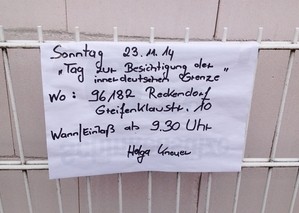 Sonntag 23.11.14
„Tag zur Besichtigung der
innerdeutschen Grenze"
Wo: 96182 Reckendorf
Greifenklaustr. 10
Wann/Einlaß ab 9.30 Uhr
Helga Kneuer